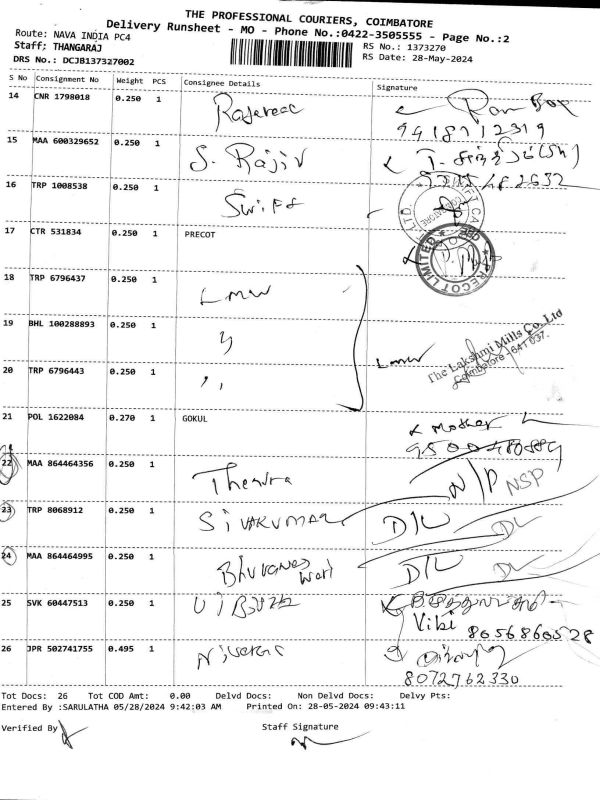 THE PROFESSIONAL COURIERS, COIMBATORE
Delivery Runsheet - MO - Phone No.:0422-3505555 - Page No.:2
Route: NAVA INDIA PC4
RS No.: 1373270
Staff; THANGARAJ
RS Date: 28-May-2024
DRS No.: DCJB137327002
S No Consignment No Weight PCS Consignee Details Signature
14 CNR 1798018 0.250 1
9418112319
15 MAA 600329652 0.250 1 S. Rajiv
16 TRP 1008538 0.250 1 Swift
17 CTR 531834 0.250 1 PRECOT
PRECOT LIMITED
18 TRP 6796437 0.250 1 Lmw
19 BHL 100288893 0.250 1 "
Lmw The Lakshmi Mills Co. Ltd
Coimbatore - 641 037.
20 TRP 6796443 0.250 1 "
21 POL 1622084 0.270 1 GOKUL Mother
22 MAA 864464356 0.250 1 N/P NSP
23 TRP 8068912 0.250 1 Sivakumar D/L DL
24 MAA 864464995 0.250 1 Bhuvanes D/L DL
wari
25 SVK 60447513 0.250 1
Vibi 8056860528
26 JPR 502741755 0.495 1
8072762330
Tot Docs: 26 Tot COD Amt: 0.00 Delvd Docs: Non Delvd Docs: Delvy Pts:
Entered By :SARULATHA 05/28/2024 9:42:03 AM Printed On: 28-05-2024 09:43:11
Verified By Staff Signature